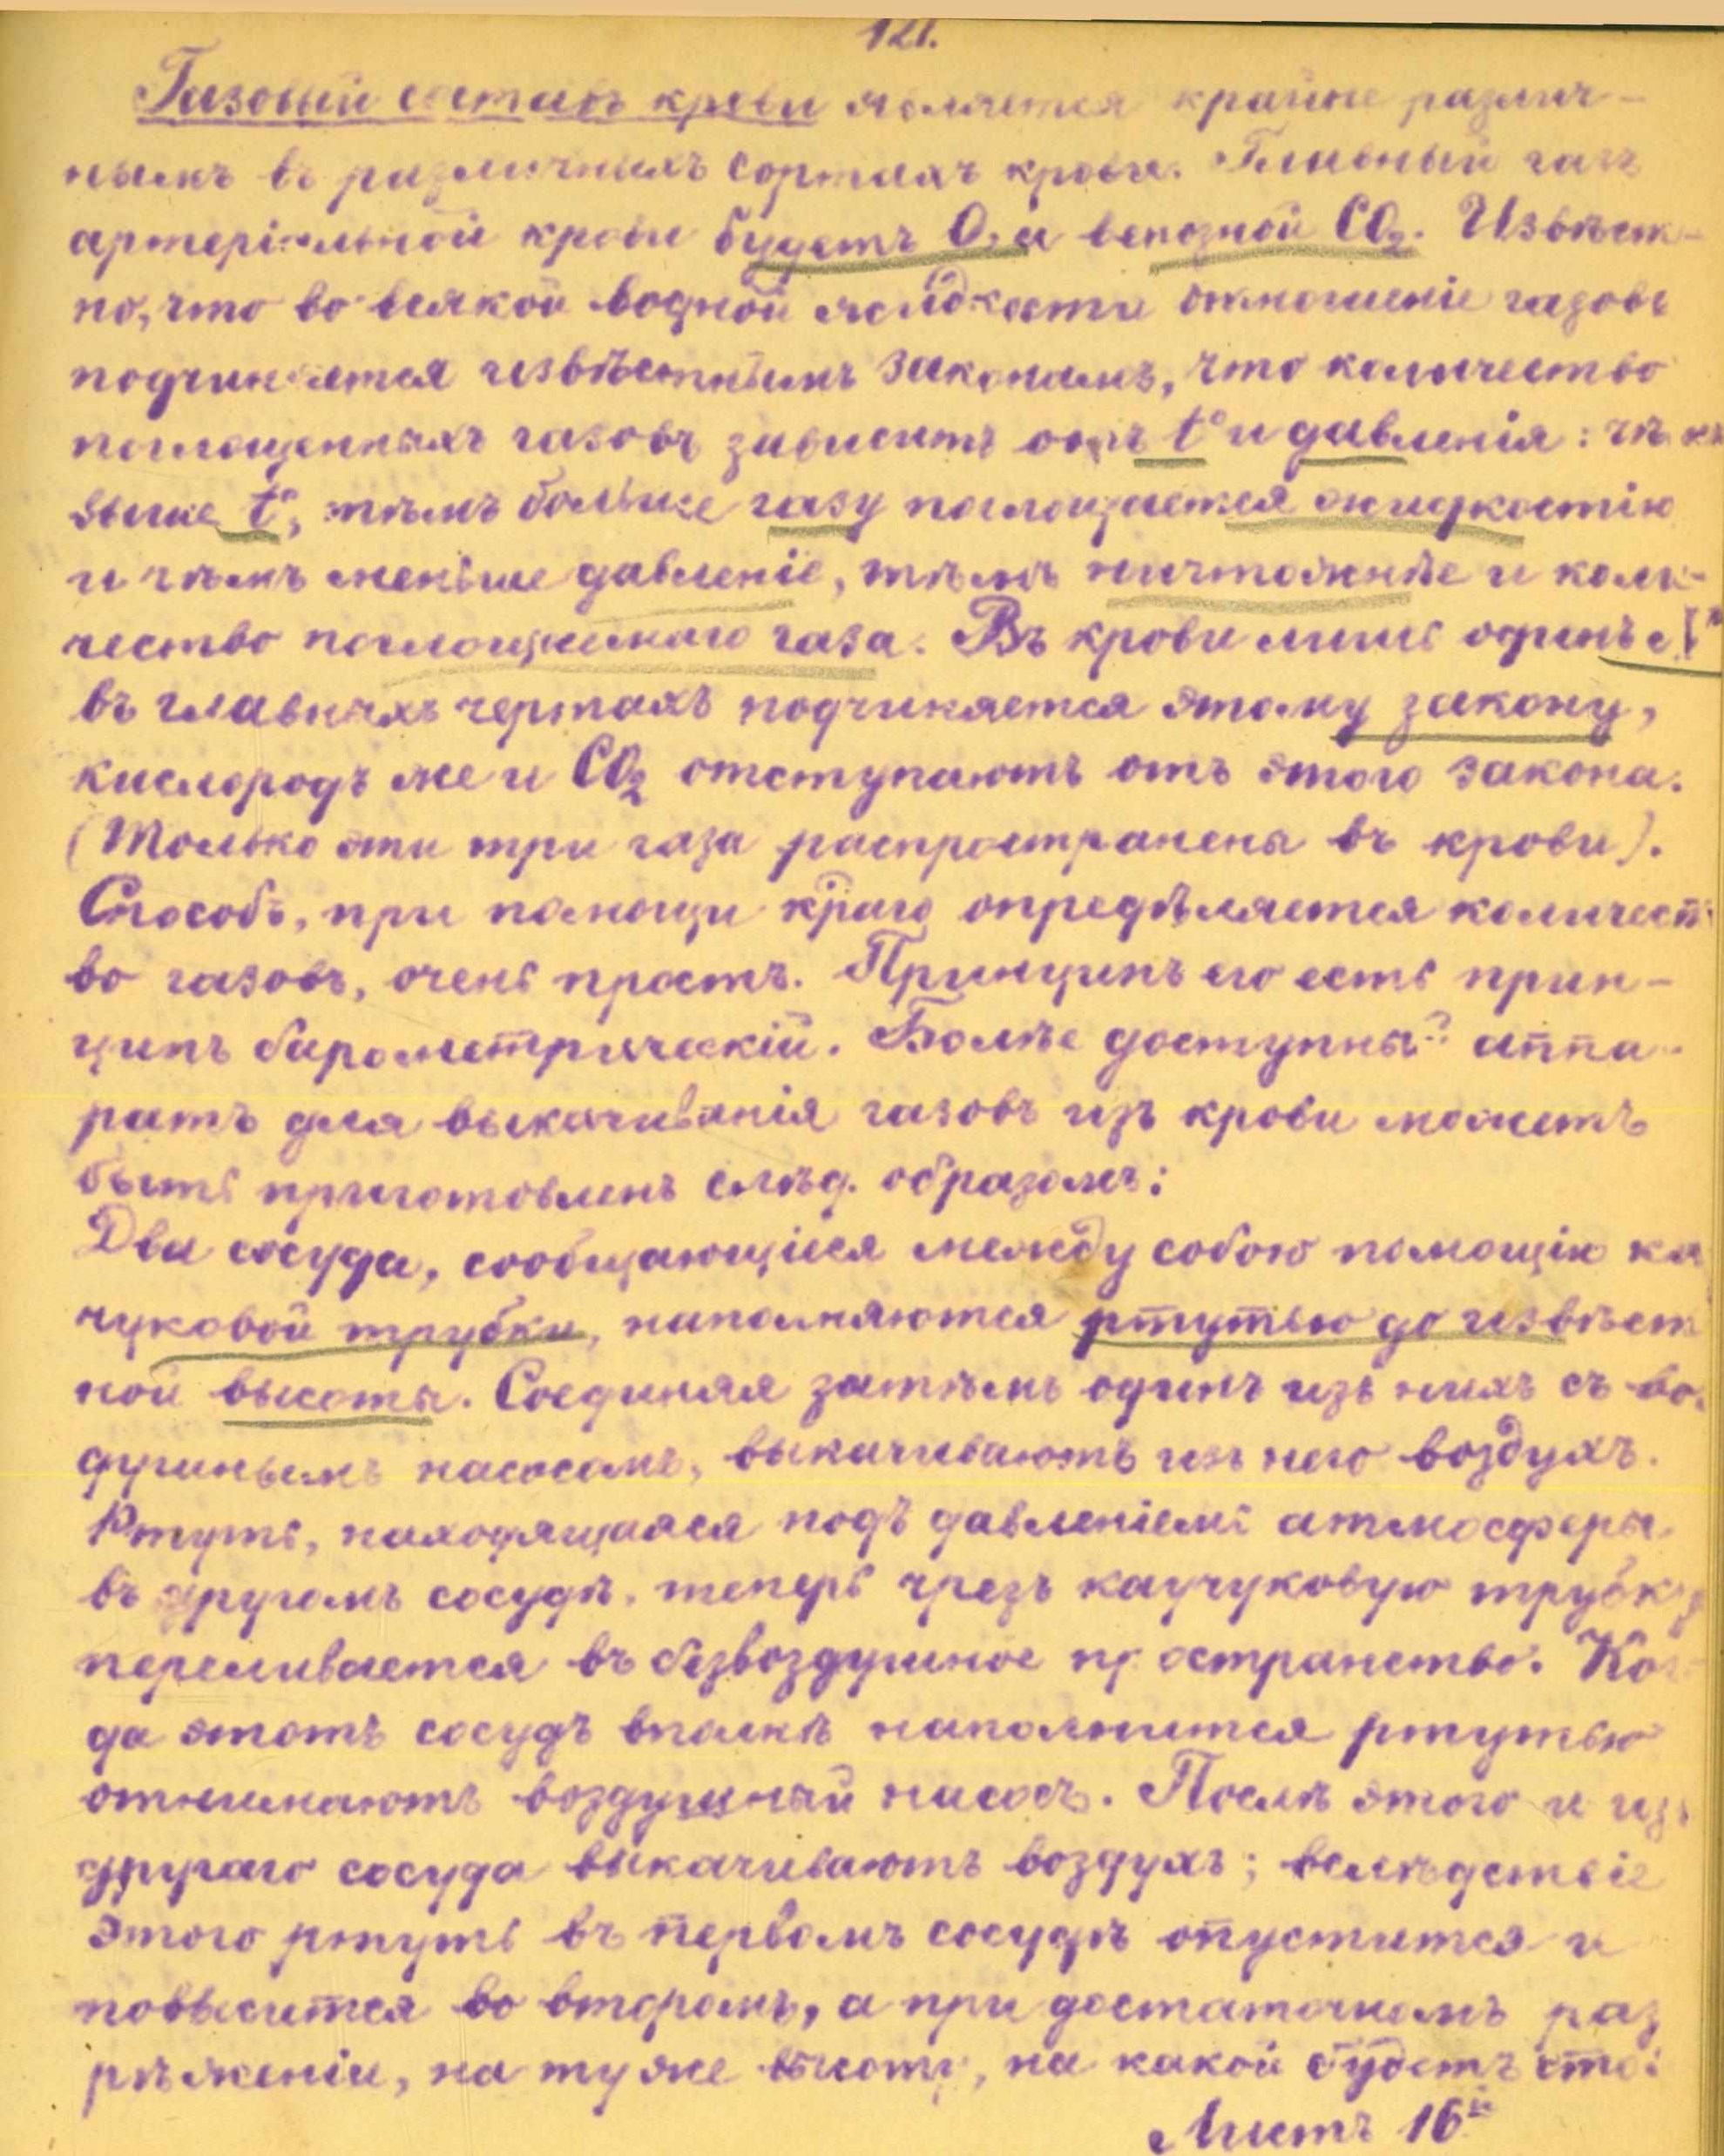 121.
Газовый составъ крови является крайне различ-
нымъ въ различныхъ сортахъ крови. Главный газъ
артеріальной крови будетъ O, и венозной CO₂. Извѣст-
но, что во всякой водной жидкости отношеніе газовъ
подчиняется извѣстнымъ законамъ, что количество
поглощенныхъ газовъ зависитъ отъ t° и давленія: чѣмъ
выше t°, тѣмъ больше газу поглощается жидкостію
и чѣмъ меньше давленіе, тѣмъ ничтожнѣе и коли-
чество поглощаемаго газа. Въ крови лишь одинъ
въ главныхъ чертахъ подчиняется этому закону,
кислородъ же и CO₂ отступаютъ отъ этого закона.
(Только эти три газа распространены въ крови).
Способъ, при помощи краго опредѣляется количест
во газовъ, очень простъ. Принципъ его есть прин-
ципъ барометрическій. Болѣе доступный аппа-
ратъ для выкачиванія газовъ изъ крови можетъ
быть приготовленъ слѣд. образомъ:
Два сосуда, сообщающіеся между собою помощію ка
чуковой трубки, наполняются ртутью до извѣст
ной высоты. Соединяя затѣмъ одинъ изъ нихъ съ воз
душнымъ насосомъ, выкачиваютъ изъ него воздухъ.
Ртуть, находящаяся подъ давленіемъ атмосферы
въ другомъ сосудѣ, теперь чрезъ каучуковую трубку
переливается въ безвоздушное пространство. Ког
да этотъ сосудъ вполнѣ наполнится ртутью
отнимаютъ воздушный насосъ. Послѣ этого и изъ
другаго сосуда выкачиваютъ воздухъ; вслѣдствіе
этого ртуть въ первомъ сосудѣ опустится и
повысится во второмъ, а при достаточномъ раз
рѣженіи, на ту же высоту, на какой будетъ сто
Листъ 16й